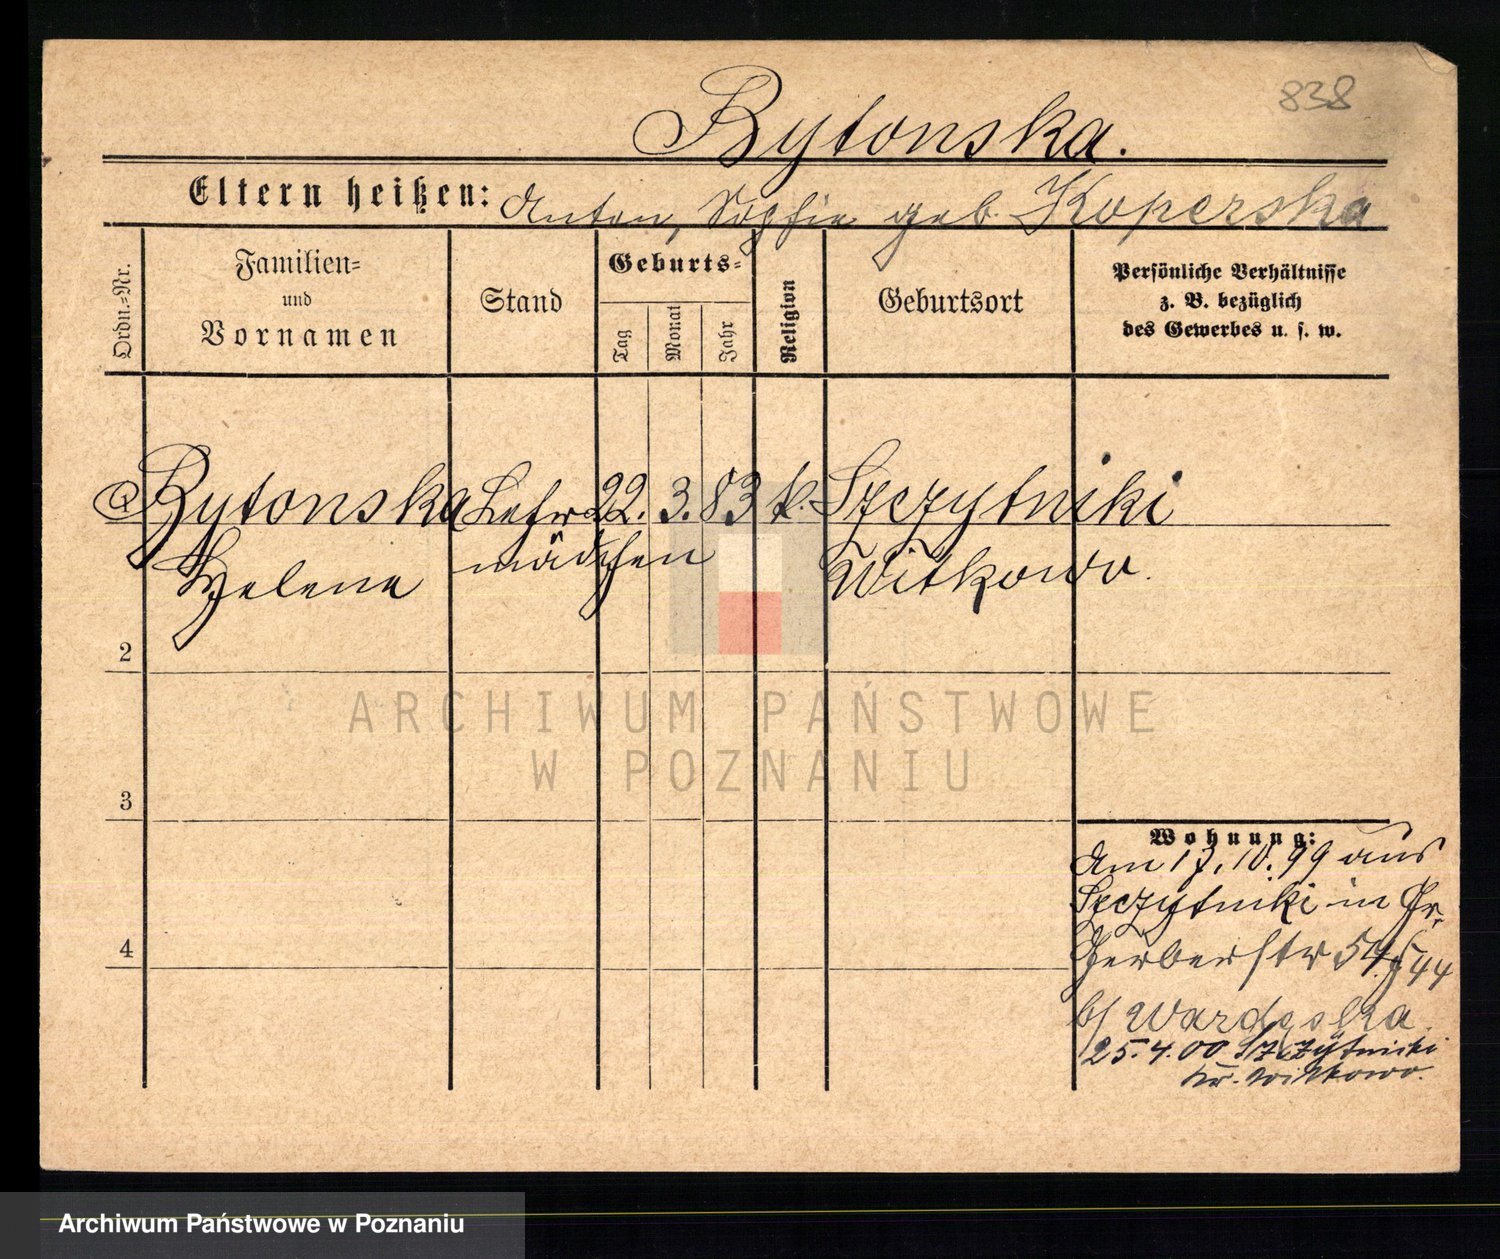 838
Bytonska.
Eltern heißen: Anton, Sophie geb. Koperska
Ordn.=Nr.
Familien=
und
Vornamen
Stand
Geburts=
Tag
Monat
Jahr
Religion
Geburtsort
Persönliche Verhältnisse
z. B. bezüglich
des Gewerbes u. s. w.
1 Bytonska Lehr 22. 3. 83 k. Szczytniki
Helene mädchen Witkowo.
2
3
4
Wohnung:
Am 17.10.99 aus
Szczytniki in Gr.
Gerberstr 54
b/
25.4.00 Szczytniki
Kr. Witkowo.
ARCHIWUM PAŃSTWOWE
W POZNANIU
Archiwum Państwowe w Poznaniu